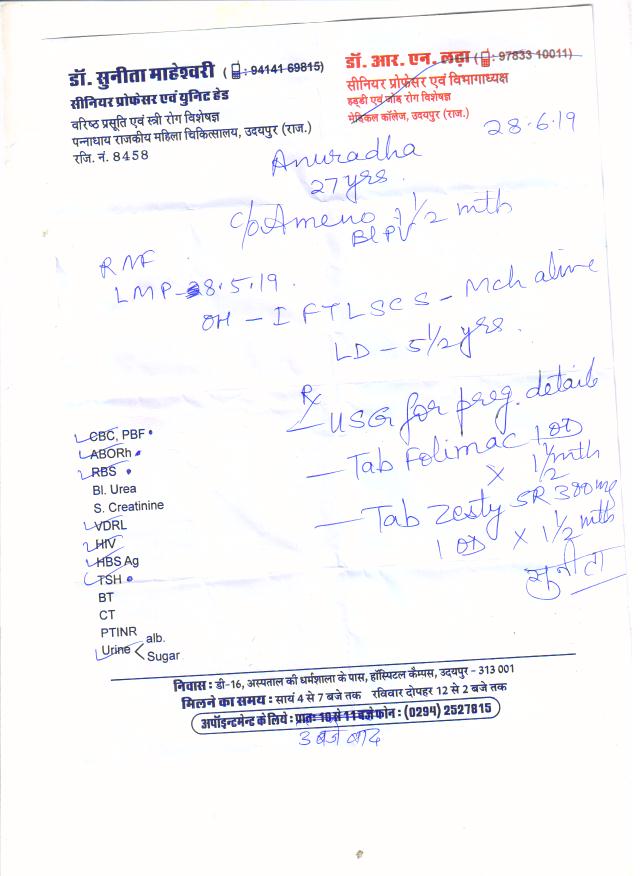 डॉ. सुनीता माहेश्वरी ( : 94141 69815)
सीनियर प्रोफेसर एवं युनिट हेड
वरिष्ठ प्रसूति एवं स्त्री रोग विशेषज्ञ
पन्नाधाय राजकीय महिला चिकित्सालय, उदयपुर (राज.)
रजि. नं. 8458
डॉ. आर. एन. लढ़ा ( : 97833 10011)
सीनियर प्रोफेसर एवं विभागाध्यक्ष
हड्डी एवं जोड़ रोग विशेषज्ञ
मेडिकल कॉलेज, उदयपुर (राज.)
28.6.19
Anuradha
27 yrs.
c/o Ameno 1 1/2 mth
Bl PV
RMF
LMP - 28.5.19.
OH - I FTLSCS - Mch alive
LD - 5 1/2 yrs.
Rx
USG for preg. details
- Tab Folimac 1 OD
X 1 1/2 mth
- Tab Zesty SR 300 mg
1 OD X 1 1/2 mth
सुनीता
CBC, PBF
ABORh
RBS
Bl. Urea
S. Creatinine
VDRL
HIV
HBS Ag
TSH
BT
CT
PTINR
Urine < alb.
Sugar
निवास : डी-16, अस्पताल की धर्मशाला के पास, हॉस्पिटल कैम्पस, उदयपुर - 313 001
मिलने का समय : सायं 4 से 7 बजे तक रविवार दोपहर 12 से 2 बजे तक
अपॉइन्टमेन्ट के लिये : प्रातः 10 से 11 बजे फोन : (0294) 2527815
3 बजे बाद